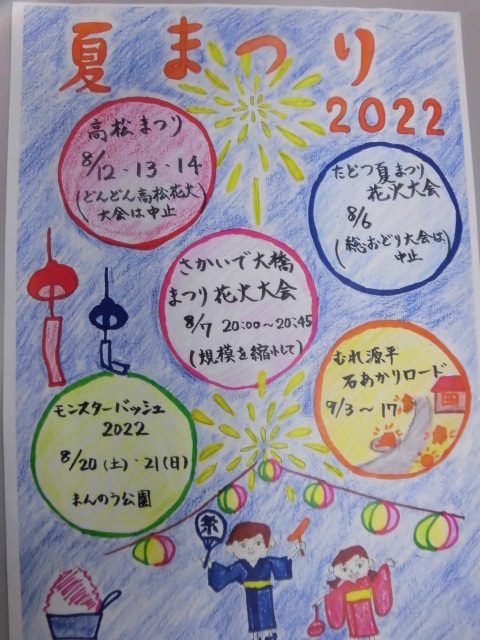 夏まつり
2022
高松まつり
8/12・13・14
(どんどん高松花火
大会は中止
たどつ夏まつり
花火大会
8/6
(総おどり大会は)
中止
さかいで大橋
まつり花火大会
8/7 20:00～20:45
(規模を縮小して)
むれ源平
石あかりロード
9/3～17
モンスターバッシュ
2022
8/20(土)・21(日)
まんのう公園
祭